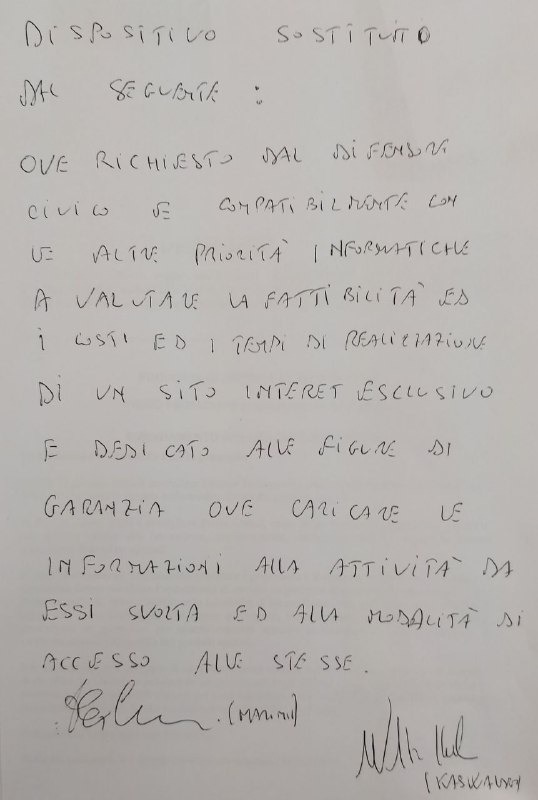 DISPOSITIVO SOSTITUITO
DAL SEGUENTE :
OVE RICHIESTO DAL DIFENSORE
CIVICO E COMPATIBILMENTE CON
LE ALTRE PRIORITÀ INFORMATICHE
A VALUTARE LA FATTIBILITÀ ED
I COSTI ED I TEMPI DI REALIZZAZIONE
DI UN SITO INTERET ESCLUSIVO
E DEDICATO ALLE FIGURE DI
GARANZIA OVE CARICARE LE
INFORMAZIONI ALLA ATTIVITÀ DA
ESSI SVOLTA ED ALLA MODALITÀ DI
ACCESSO ALLE STESSE.